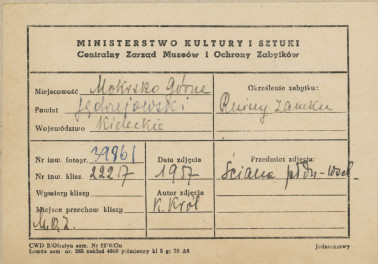 MINISTERSTWO KULTURY I SZTUKI
Centralny Zarząd Muzeów i Ochrony Zabytków
Miejscowość Mokrsko Górne
Powiat Jędrzejowski
Województwo Kieleckie
Określenie zabytku:
Ruiny Zamku
Nr inw. fotogr. 39861
Nr inw. klisz. 22217
Wymiary kliszy
Miejsce przechow. kliszy
Data zdjęcia
1957
Autor zdjęcia
K. Król
Przedmiot zdjęcia:
Ściana płdn-wsch.